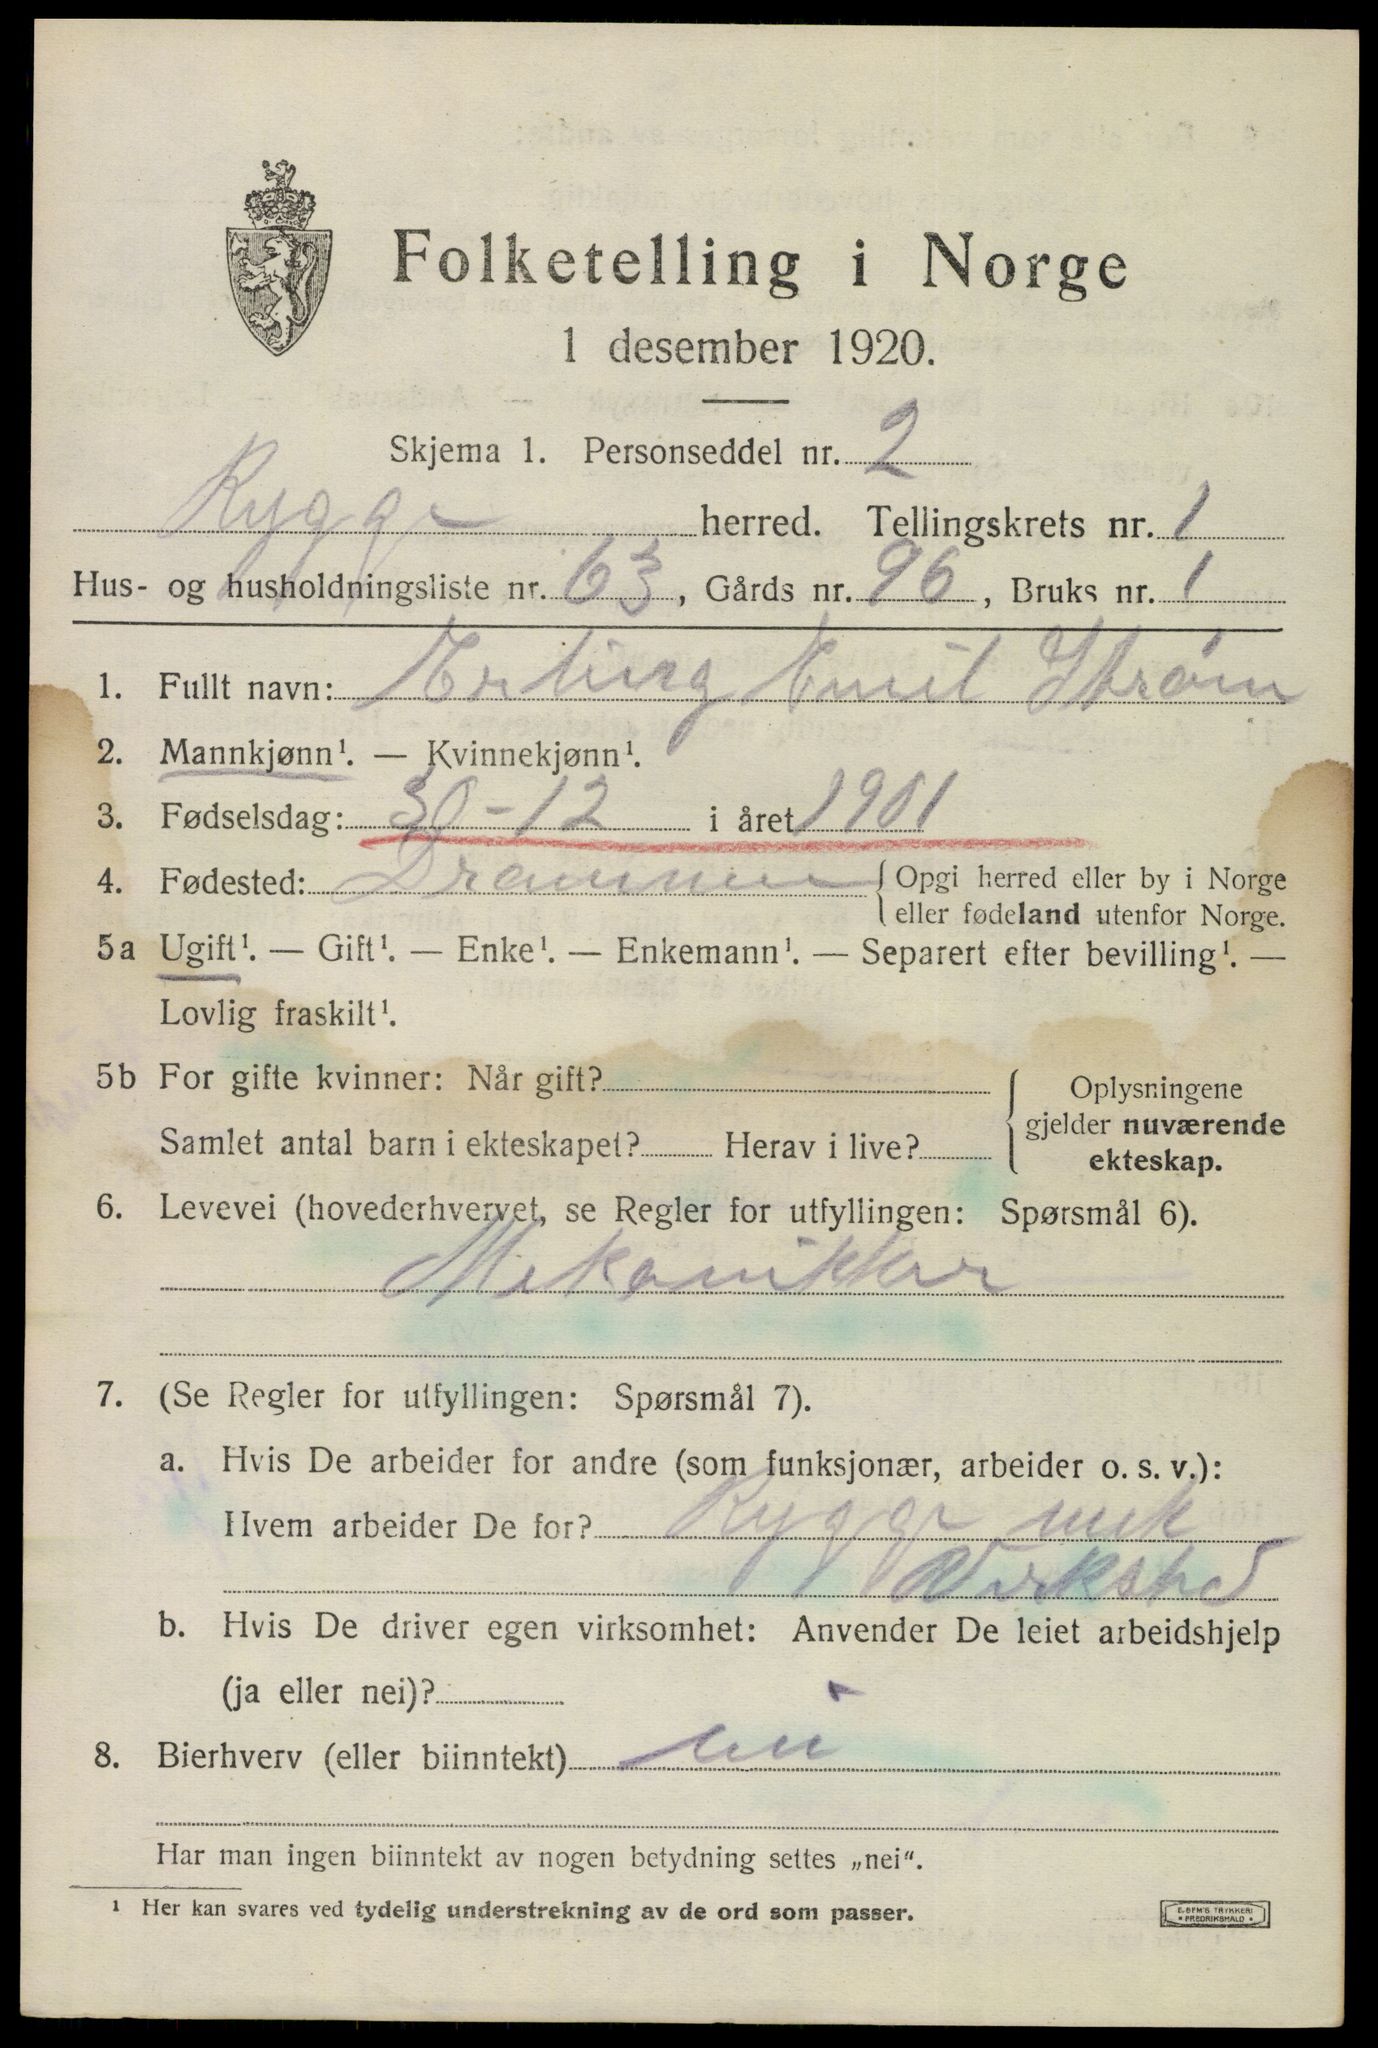 Folketelling i Norge
1 desember 1920.
Skjema 1. Personseddel nr. 2
Rygge herred. Tellingskrets nr. 1
Hus- og husholdningsliste nr. 63, Gårds nr. 96, Bruks nr. 1
1. Fullt navn: Erling Emil Strøm
2. Mannkjønn¹. — Kvinnekjønn¹.
3. Fødselsdag: 30-12 i året 1901
4. Fødested: Drammen { Opgi herred eller by i Norge
eller fødeland utenfor Norge.
5a Ugift¹. — Gift¹. — Enke¹. — Enkemann¹. — Separert efter bevilling¹. —
Lovlig fraskilt¹.
5b For gifte kvinner: Når gift?
Samlet antal barn i ekteskapet? Herav i live?
Oplysningene
gjelder nuværende
ekteskap.
6. Levevei (hovederhvervet, se Regler for utfyllingen: Spørsmål 6).
Mekanikker
7. (Se Regler for utfyllingen: Spørsmål 7).
a. Hvis De arbeider for andre (som funksjonær, arbeider o. s. v.):
Hvem arbeider De for? Rygge mek
Verksted
b. Hvis De driver egen virksomhet: Anvender De leiet arbeidshjelp
(ja eller nei)?
8. Bierhverv (eller biinntekt) nei
Har man ingen biinntekt av nogen betydning settes „nei“.
¹ Her kan svares ved tydelig understrekning av de ord som passer.
E. SEM'S TRYKKERI
* FREDRIKSHALD *